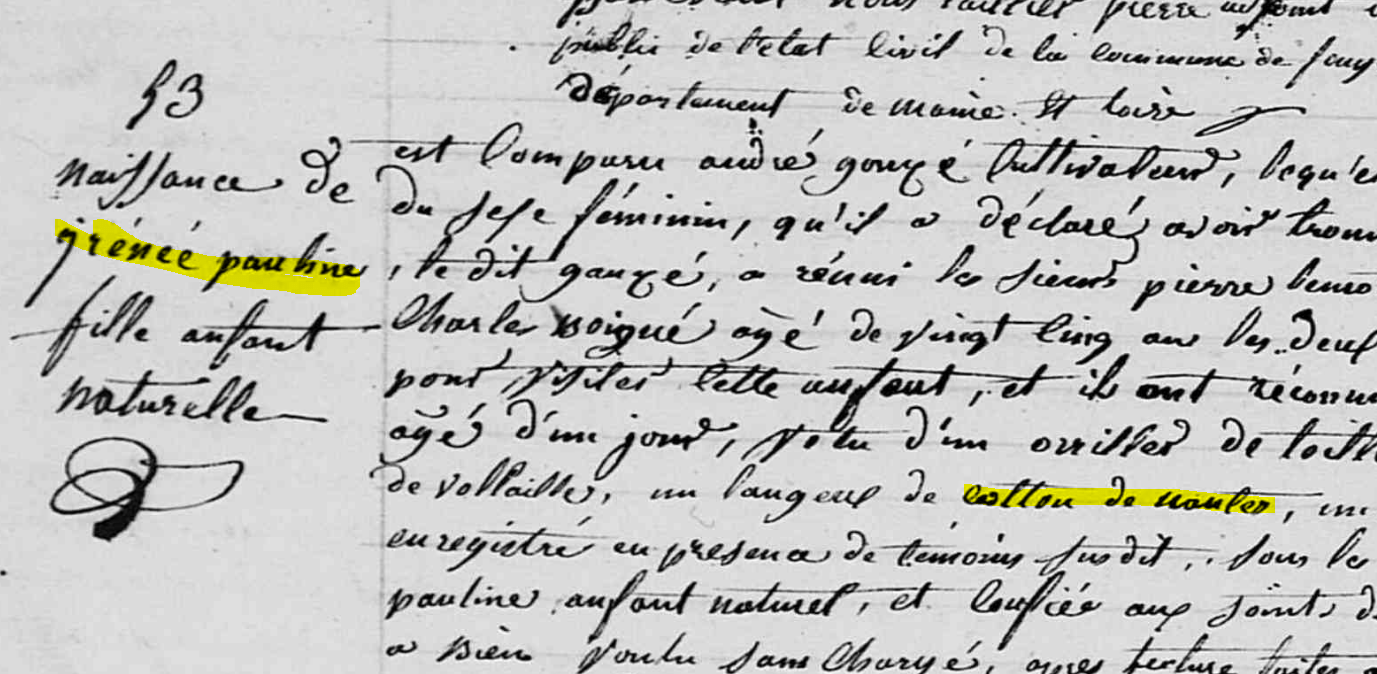 53
naissance de
grénéé pauline
fille anfant
naturelle
nous pierre adjoint
public de l'etat civil de la commune de fay
département de maine et loire
est comparu andré gouzé cultivateur, lequ'e
du sexe féminin, qu'il a déclaré avoir trouv
, le dit gouzé, a réuni les sieurs pierre
Charles agé de vingt cinq ans les deux
pour visiter cette anfant, et ils ont réconnu
agé d'un jour, vetu d'un orriller de toille
de vollaille, un langeux de cotton de nantes, un
enregistré en presence de témoins susdit, sous les
pauline anfant naturel, et confiée aux soints d
a bien voulu sans chargé, apres lecture faites